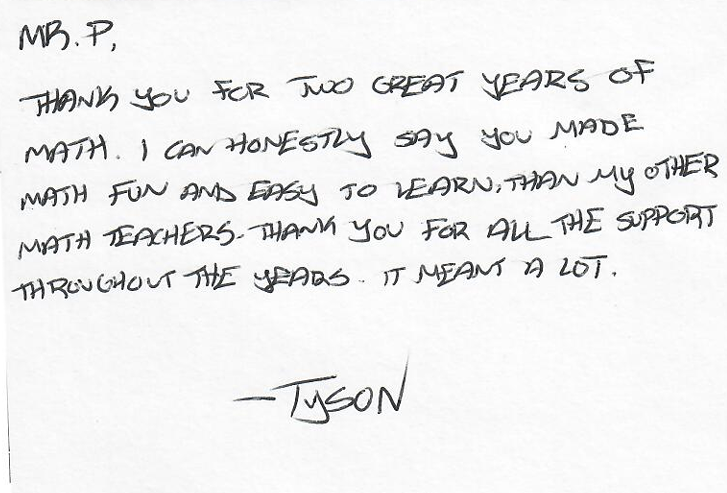 MR. P,
THANK YOU FOR TWO GREAT YEARS OF
MATH. I CAN HONESTLY SAY YOU MADE
MATH FUN AND EASY TO LEARN, THAN MY OTHER
MATH TEACHERS. THANK YOU FOR ALL THE SUPPORT
THROUGHOUT THE YEARS. IT MEANT A LOT.
- TYSON